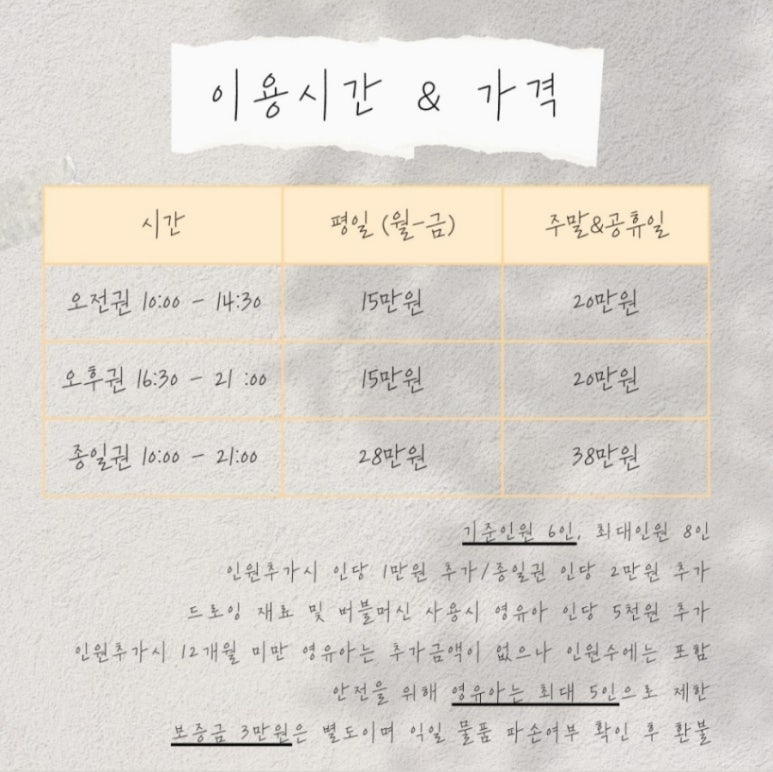 이용시간 & 가격
시간 평일 (월-금) 주말&공휴일
오전권 10:00 - 14:30 15만원 20만원
오후권 16:30 - 21 :00 15만원 20만원
종일권 10:00 - 21:00 28만원 38만원
기준인원 6인, 최대인원 8인
인원추가시 인당 1만원 추가/종일권 인당 2만원 추가
드로잉 재료 및 버블머신 사용시 영유아 인당 5천원 추가
인원추가시 12개월 미만 영유아는 추가금액이 없으나 인원수에는 포함
안전을 위해 영유아는 최대 5인으로 제한
보증금 3만원은 별도이며 익일 물품 파손여부 확인 후 환불